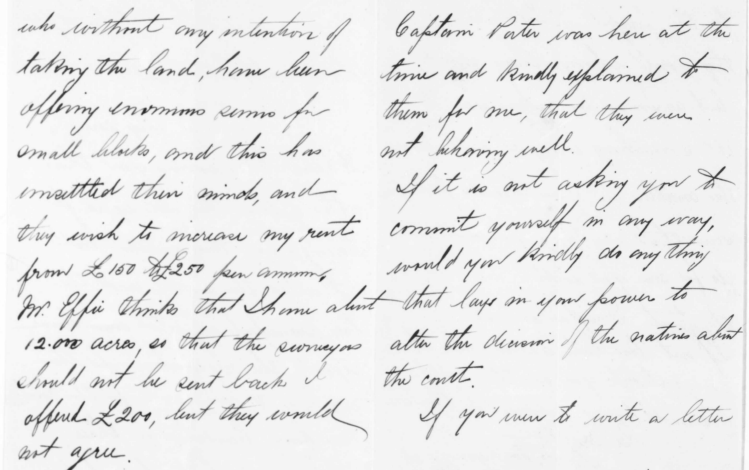 who without any intention of
taking the land, have been
offering enormous sums for
small blocks, and this has
unsettled their minds, and
they wish to increase my rent
from £150 to £250 per annum,
Mr. Effie thinks that I have about
12.000 acres, so that the surveyors
should not be sent back I
offered £200, but they would
not agree.
Captain Porter was here at the
time and kindly explained to
them for me, that they were
not behaving well.
If it is not asking you to
commit yourself in any way,
would you kindly do any thing
that lays in your power to
alter the decision of the natives about
the court.
If you were to write a letter